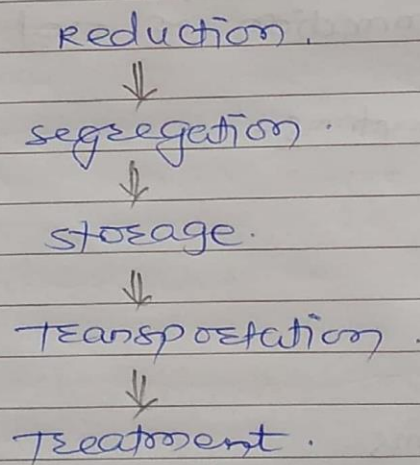 Reduction.
⇓
segregation.
⇓
storage.
⇓
Transportation.
⇓
Treatment.